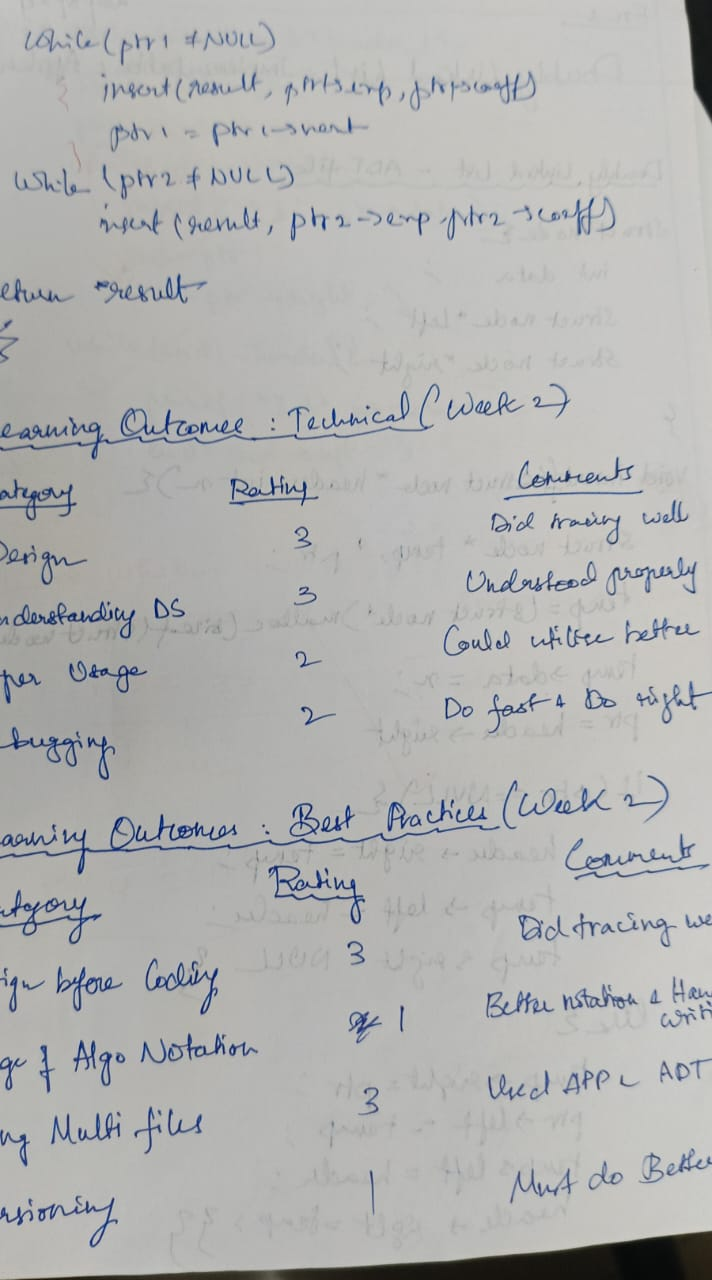 while (ptr1 ≠ NULL)
{ insert(result, ptr1→exp, ptr1→coeff)
ptr1 = ptr1→next
}
while (ptr2 ≠ NULL)
insert (result, ptr2→exp, ptr2→coeff)
eturn *result
}
earning Outcomes : Technical (Week 2)
ategory Rating Comments
Design 3 Did tracing well
nderstanding DS 3 Understood properly
per Usage 2 Could utilize better
bugging 2 Do fast & Do right
arning Outcomes : Best Practices (Week 2)
ategory Rating Comments
ign before Coding 3 Did tracing we
ge of Algo Notation 1 Better notation & Han
writi
ng Multi files 3 Used APP & ADT
ersioning 1 Must do Better